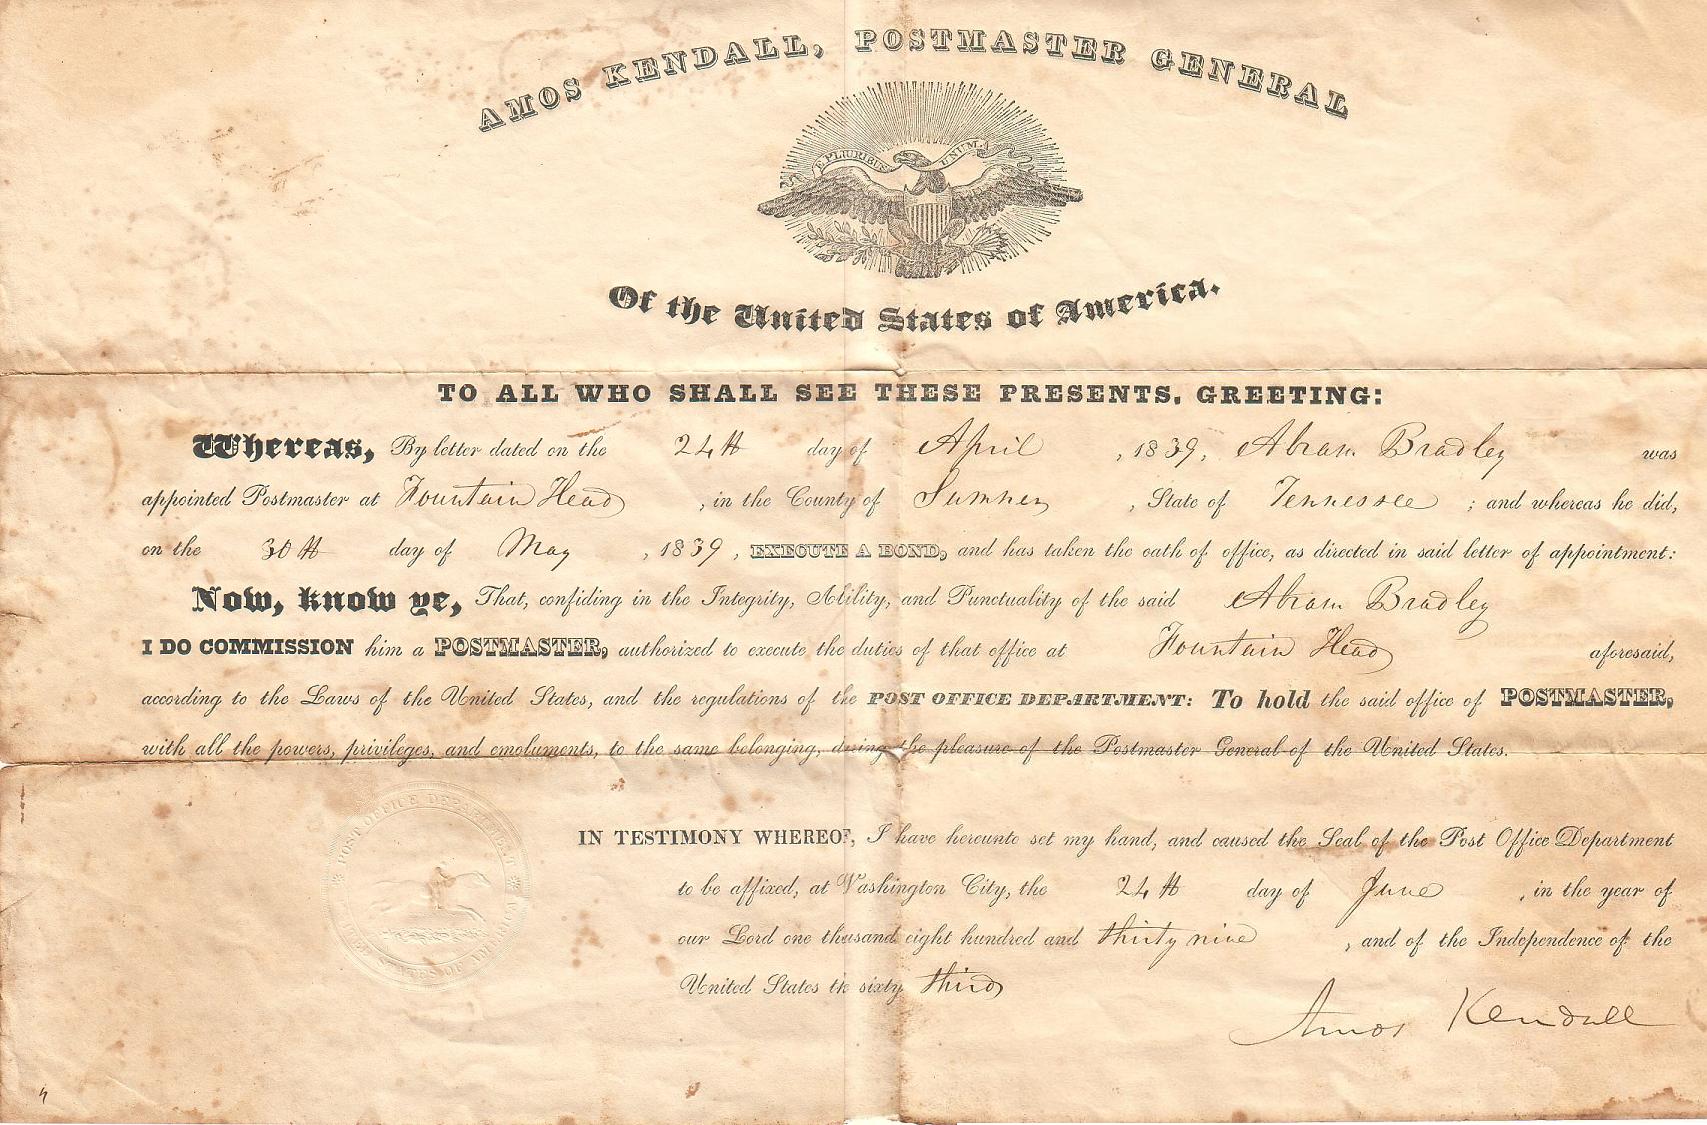 AMOS KENDALL, POSTMASTER GENERAL
E PLURIBUS UNUM
Of the United States of America.
TO ALL WHO SHALL SEE THESE PRESENTS, GREETING:
Whereas, By letter dated on the 24th day of April, 1839, Abram Bradley was
appointed Postmaster at Fountain Head, in the County of Sumner, State of Tennessee; and whereas he did,
on the 30th day of May, 1839, EXECUTE A BOND, and has taken the oath of office, as directed in said letter of appointment:
Now, know ye, That, confiding in the Integrity, Ability, and Punctuality of the said Abram Bradley
I DO COMMISSION him a POSTMASTER, authorized to execute the duties of that office at Fountain Head aforesaid,
according to the Laws of the United States, and the regulations of the POST OFFICE DEPARTMENT: To hold the said office of POSTMASTER,
with all the powers, privileges, and emoluments, to the same belonging, during the pleasure of the Postmaster General of the United States.
POST OFFICE DEPARTMENT
UNITED STATES OF AMERICA
IN TESTIMONY WHEREOF, I have hereunto set my hand, and caused the Seal of the Post Office Department
to be affixed, at Washington City, the 24th day of June, in the year of
our Lord one thousand eight hundred and thirty nine, and of the Independence of the
United States the sixty third
Amos Kendall